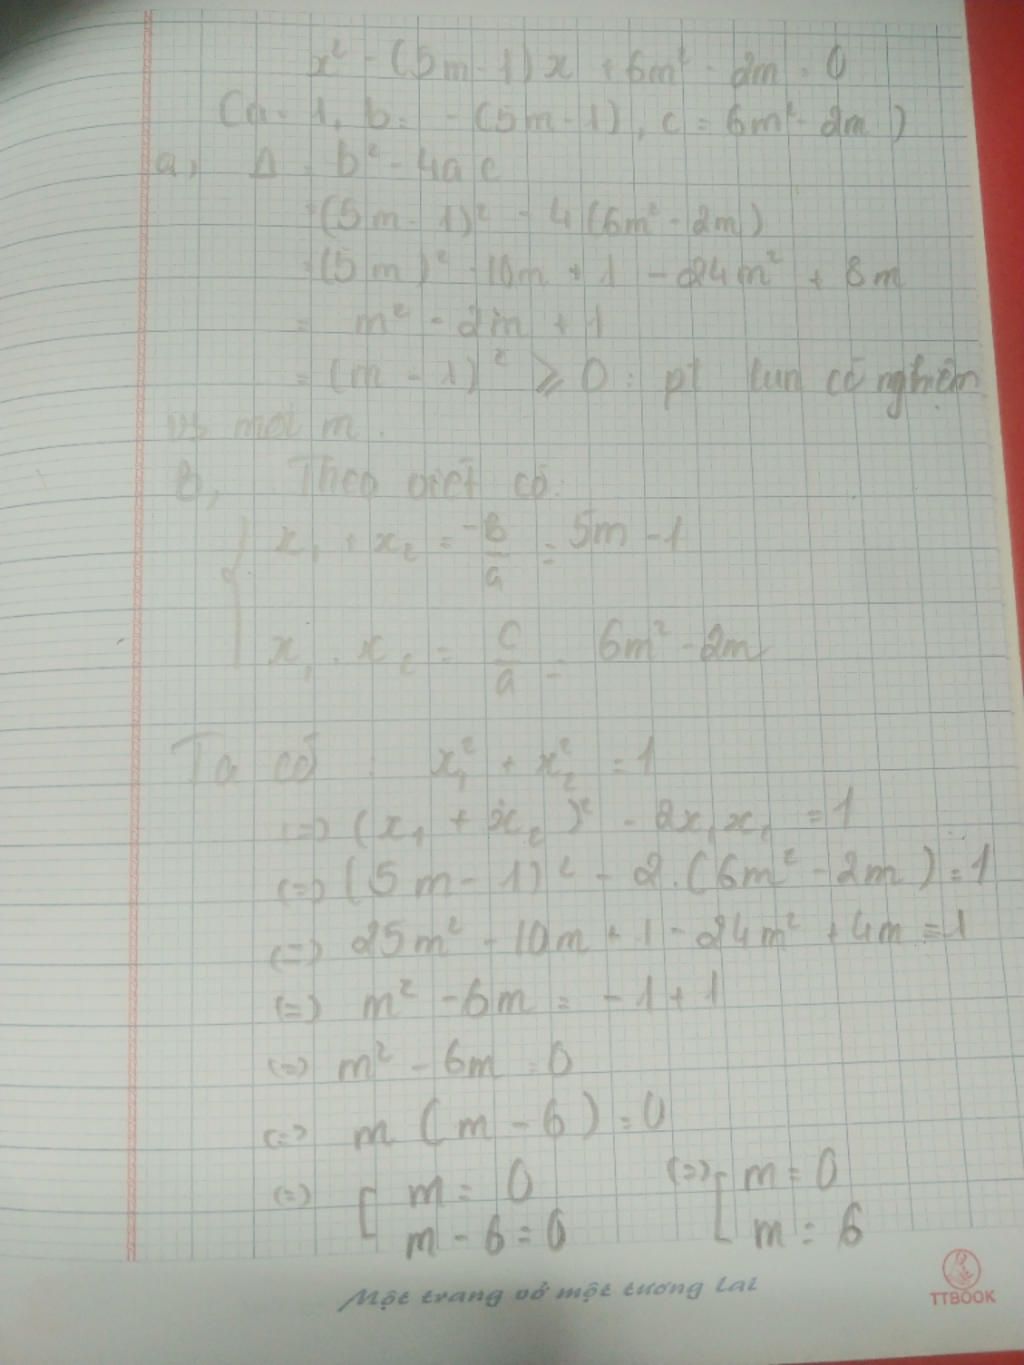 x² - (5m-1)x + 6m² - 2m = 0
(a = 1, b = -(5m-1), c = 6m² - 2m)
a, Δ = b² - 4ac
= (5m - 1)² - 4(6m² - 2m)
= (5m)² - 10m + 1 - 24m² + 8m
= m² - 2m + 1
= (m - 1)² ≥ 0 : pt lun có nghiệm
vs mọi m.
b, Theo viét có:
x₁ + x₂ = -b/a = 5m - 1
x₁ . x₂ = c/a = 6m² - 2m
Ta có x₁² + x₂² = 1
(=) (x₁ + x₂)² - 2x₁x₂ = 1
(=) (5m - 1)² - 2.(6m² - 2m) = 1
(=) 25m² - 10m + 1 - 24m² + 4m = 1
(=) m² - 6m = -1 + 1
(=) m² - 6m = 0
(=) m (m - 6) = 0
(=) [ m = 0 (=) [ m = 0
m - 6 = 0 m = 6
Một trang vở một tương lai
TTBOOK